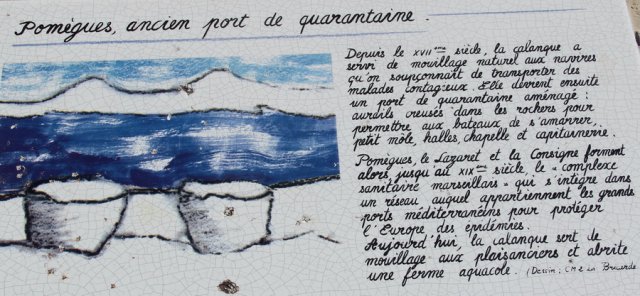 Pomègues, ancien port de quarantaine.
Depuis le XVIIème siècle, la calanque a
servi de mouillage naturel aux navires
qu'on soupçonnait de transporter des
malades contagieux. Elle devient ensuite
un port de quarantaine aménagé :
aurails creusés dans les rochers pour
permettre aux bateaux de s'amarrer,
petit môle, halles, chapelle et capitainerie.
Pomègues, le Lazaret et la Consigne forment
alors, jusqu'au XIXème siècle, le "complexe
sanitaire marseillais" qui s'intègre dans
un réseau auquel appartiennent les grands
ports méditerranéens pour protéger
l'Europe des épidémies.
Aujourd'hui, la calanque sert de
mouillage aux plaisanciers et abrite
une ferme aquacole. (Dessin : CM2 La